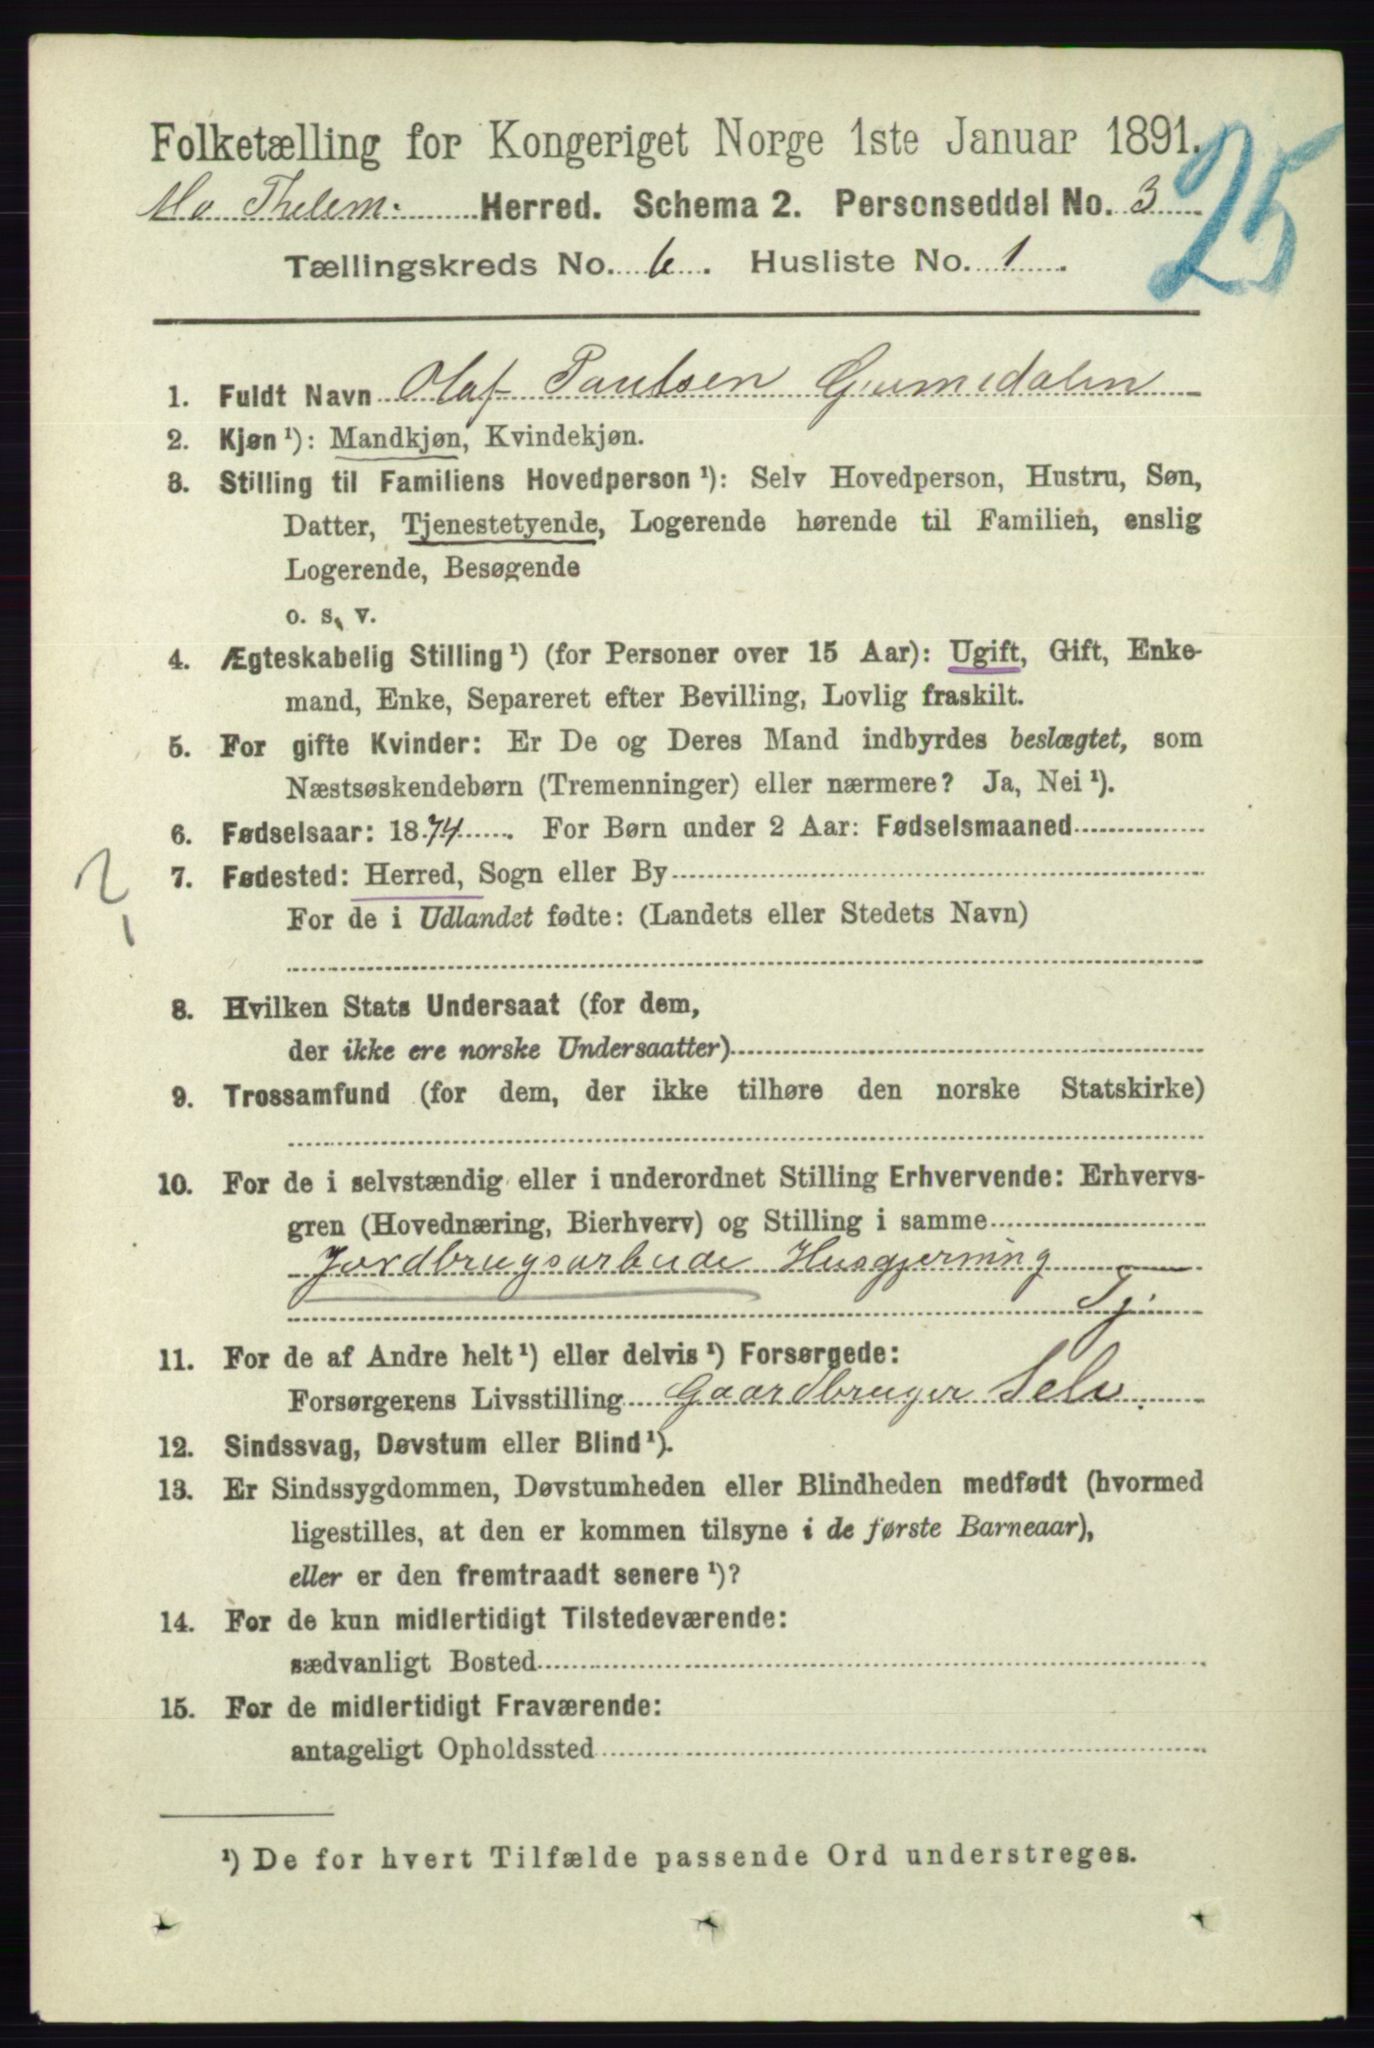 Folketælling for Kongeriget Norge 1ste Januar 1891.
25
Mo Thelem. Herred. Schema 2. Personseddel No. 3
Tællingskreds No. 6. Husliste No. 1.
1. Fuldt Navn Olaf Paulsen
2. Kjøn ¹): Mandkjøn, Kvindekjøn.
3. Stilling til Familiens Hovedperson ¹): Selv Hovedperson, Hustru, Søn,
Datter, Tjenestetyende, Logerende hørende til Familien, enslig
Logerende, Besøgende
o. s. v.
4. Ægteskabelig Stilling ¹) (for Personer over 15 Aar): Ugift, Gift, Enke-
mand, Enke, Separeret efter Bevilling, Lovlig fraskilt.
5. For gifte Kvinder: Er De og Deres Mand indbyrdes beslægtet, som
Næstsøskendebørn (Tremenninger) eller nærmere? Ja, Nei ¹).
6. Fødselsaar: 1874. For Børn under 2 Aar: Fødselsmaaned
7. Fødested: Herred, Sogn eller By
?
For de i Udlandet fødte: (Landets eller Stedets Navn)
8. Hvilken Stats Undersaat (for dem,
der ikke ere norske Undersaatter)
9. Trossamfund (for dem, der ikke tilhøre den norske Statskirke)
10. For de i selvstændig eller i underordnet Stilling Erhvervende: Erhvervs-
gren (Hovednæring, Bierhverv) og Stilling i samme
Jordbrugsarbeide Husgjerning
Tj.
11. For de af Andre helt ¹) eller delvis ¹) Forsørgede:
Forsørgerens Livsstilling Gaardbruger Selv.
12. Sindssvag, Døvstum eller Blind ¹).
13. Er Sindssygdommen, Døvstumheden eller Blindheden medfødt (hvormed
ligestilles, at den er kommen tilsyne i de første Barneaar),
eller er den fremtraadt senere ¹)?
14. For de kun midlertidigt Tilstedeværende:
sædvanligt Bosted
15. For de midlertidigt Fraværende:
antageligt Opholdssted
¹) De for hvert Tilfælde passende Ord understreges.